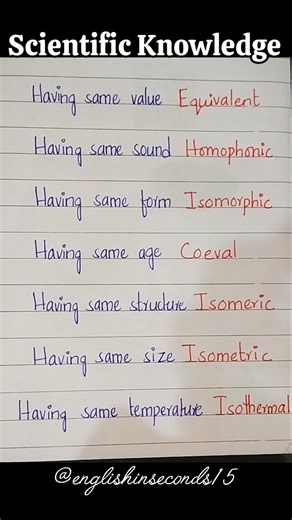 Scientific Knowledge
Having same value Equivalent
Having same sound Homophonic
Having same form Isomorphic
Having same age Coeval
Having same structure Isomeric
Having same size Isometric
Having same temperature Isothermal
@englishinseconds15